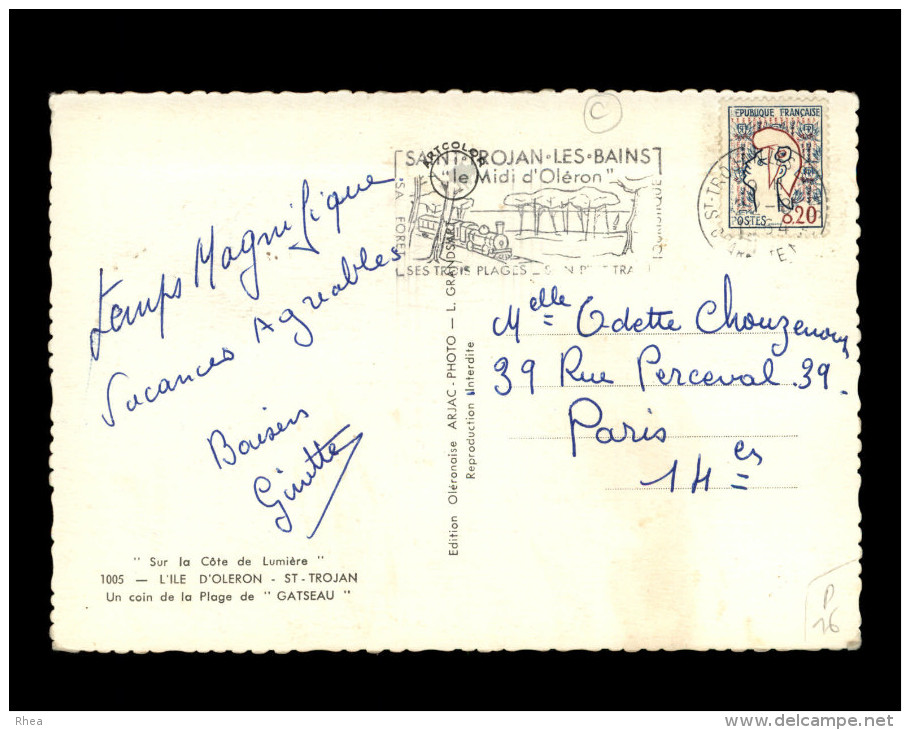 Temps Magnifique
Vacances Agréables
Baisers
Ginette
" Sur la Côte de Lumière "
1005 — L'ILE D'OLERON - ST-TROJAN
Un coin de la Plage de " GATSEAU "
Edition Oléronaise ARJAC-PHOTO — L. GRANDSART
Reproduction Interdite
ARTCOLOR
SAINT-TROJAN·LES·BAINS
"le Midi d'Oléron"
SA FORET
SES TROIS PLAGES _ SON P'TIT TRAIN
C
REPUBLIQUE FRANÇAISE
POSTES 0.20
ST-TROJAN
Melle Odette
39 Rue Perceval .39.
Paris
14 es
P
26
Rhea
www.delcampe.net